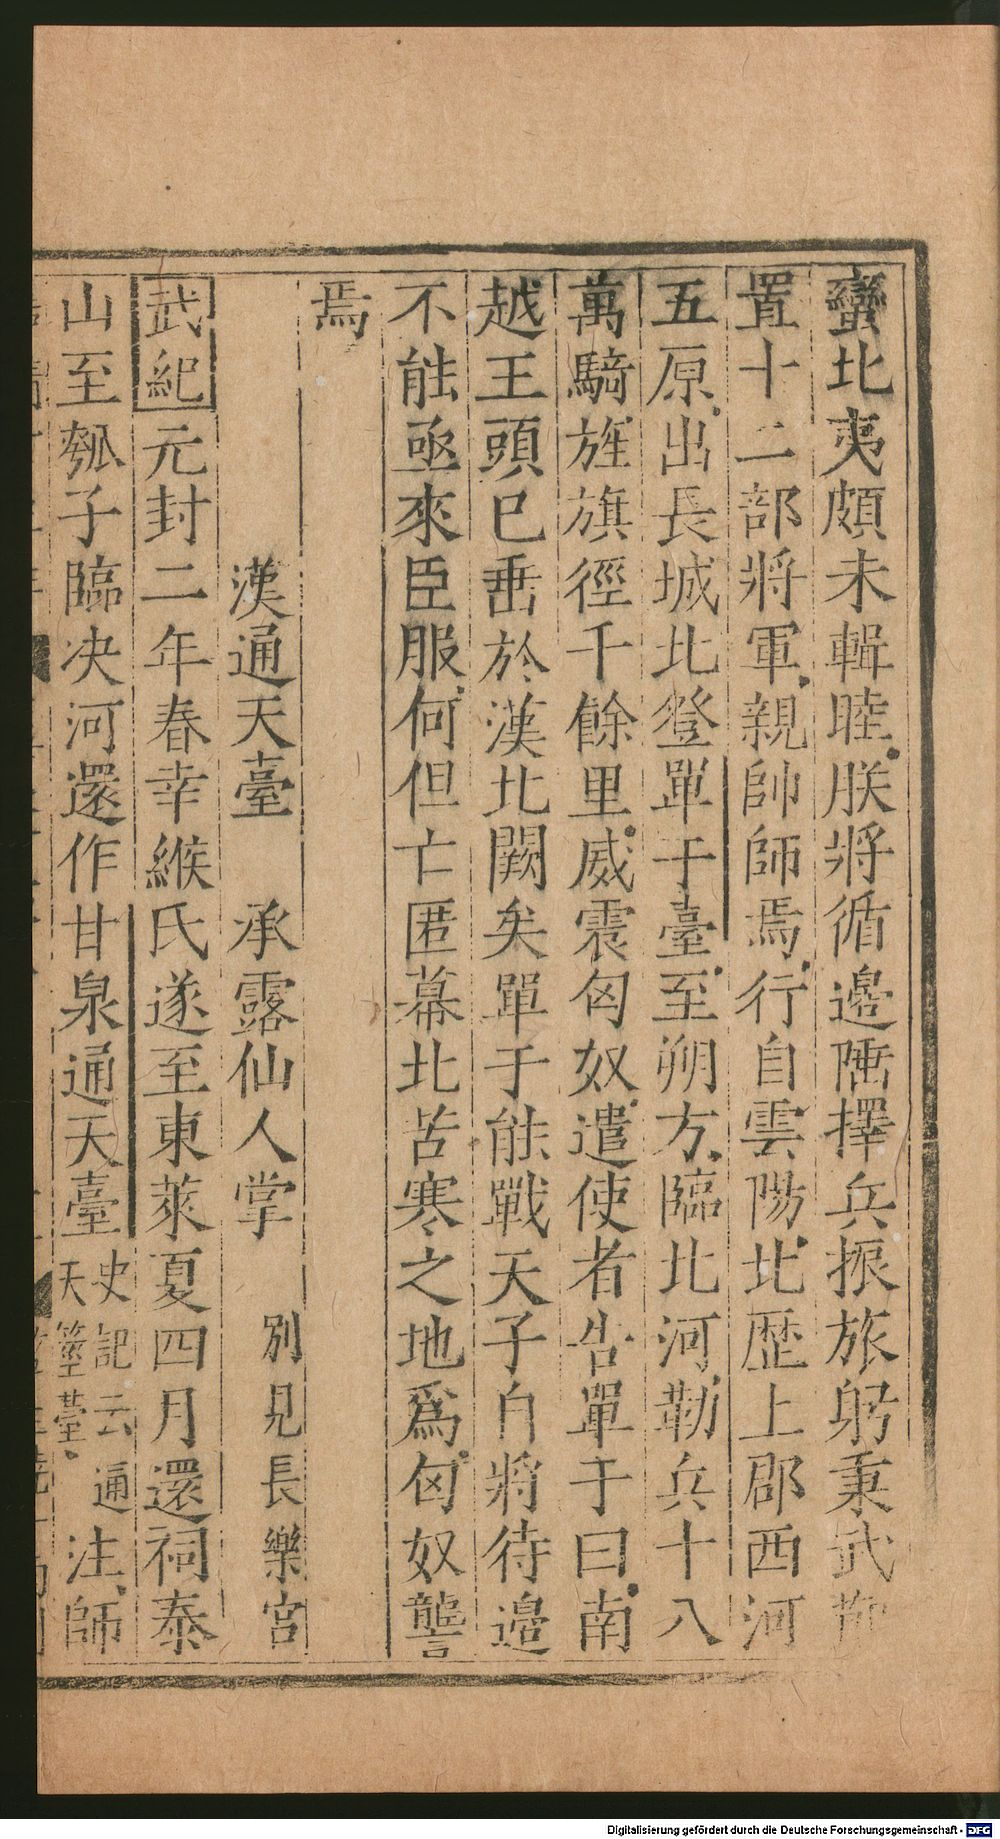 蠻北夷頗未輯睦朕將循邊陲擇兵振旅躬秉武
置十二部將軍親帥師焉行自雲陽北歴上郡西河
五原出長城北登單于臺至朔方臨北河勒兵十八
萬騎旌旗徑千餘里威震匈奴遣使者告單于曰南
越王頭已垂於漢北闕矣單于能戰天子自將待邊
不能亟來臣服何但亡匿幕北苦寒之地爲匈奴讋
焉
漢通天臺 承露仙人掌 別見長樂宮
武紀元封二年春幸緱氏遂至東萊夏四月還祠泰
山至瓠子臨决河還作甘泉通天臺史記云通天莖臺注師
Digitalisierung gefördert durch die Deutsche Forschungsgemeinschaft - DFG